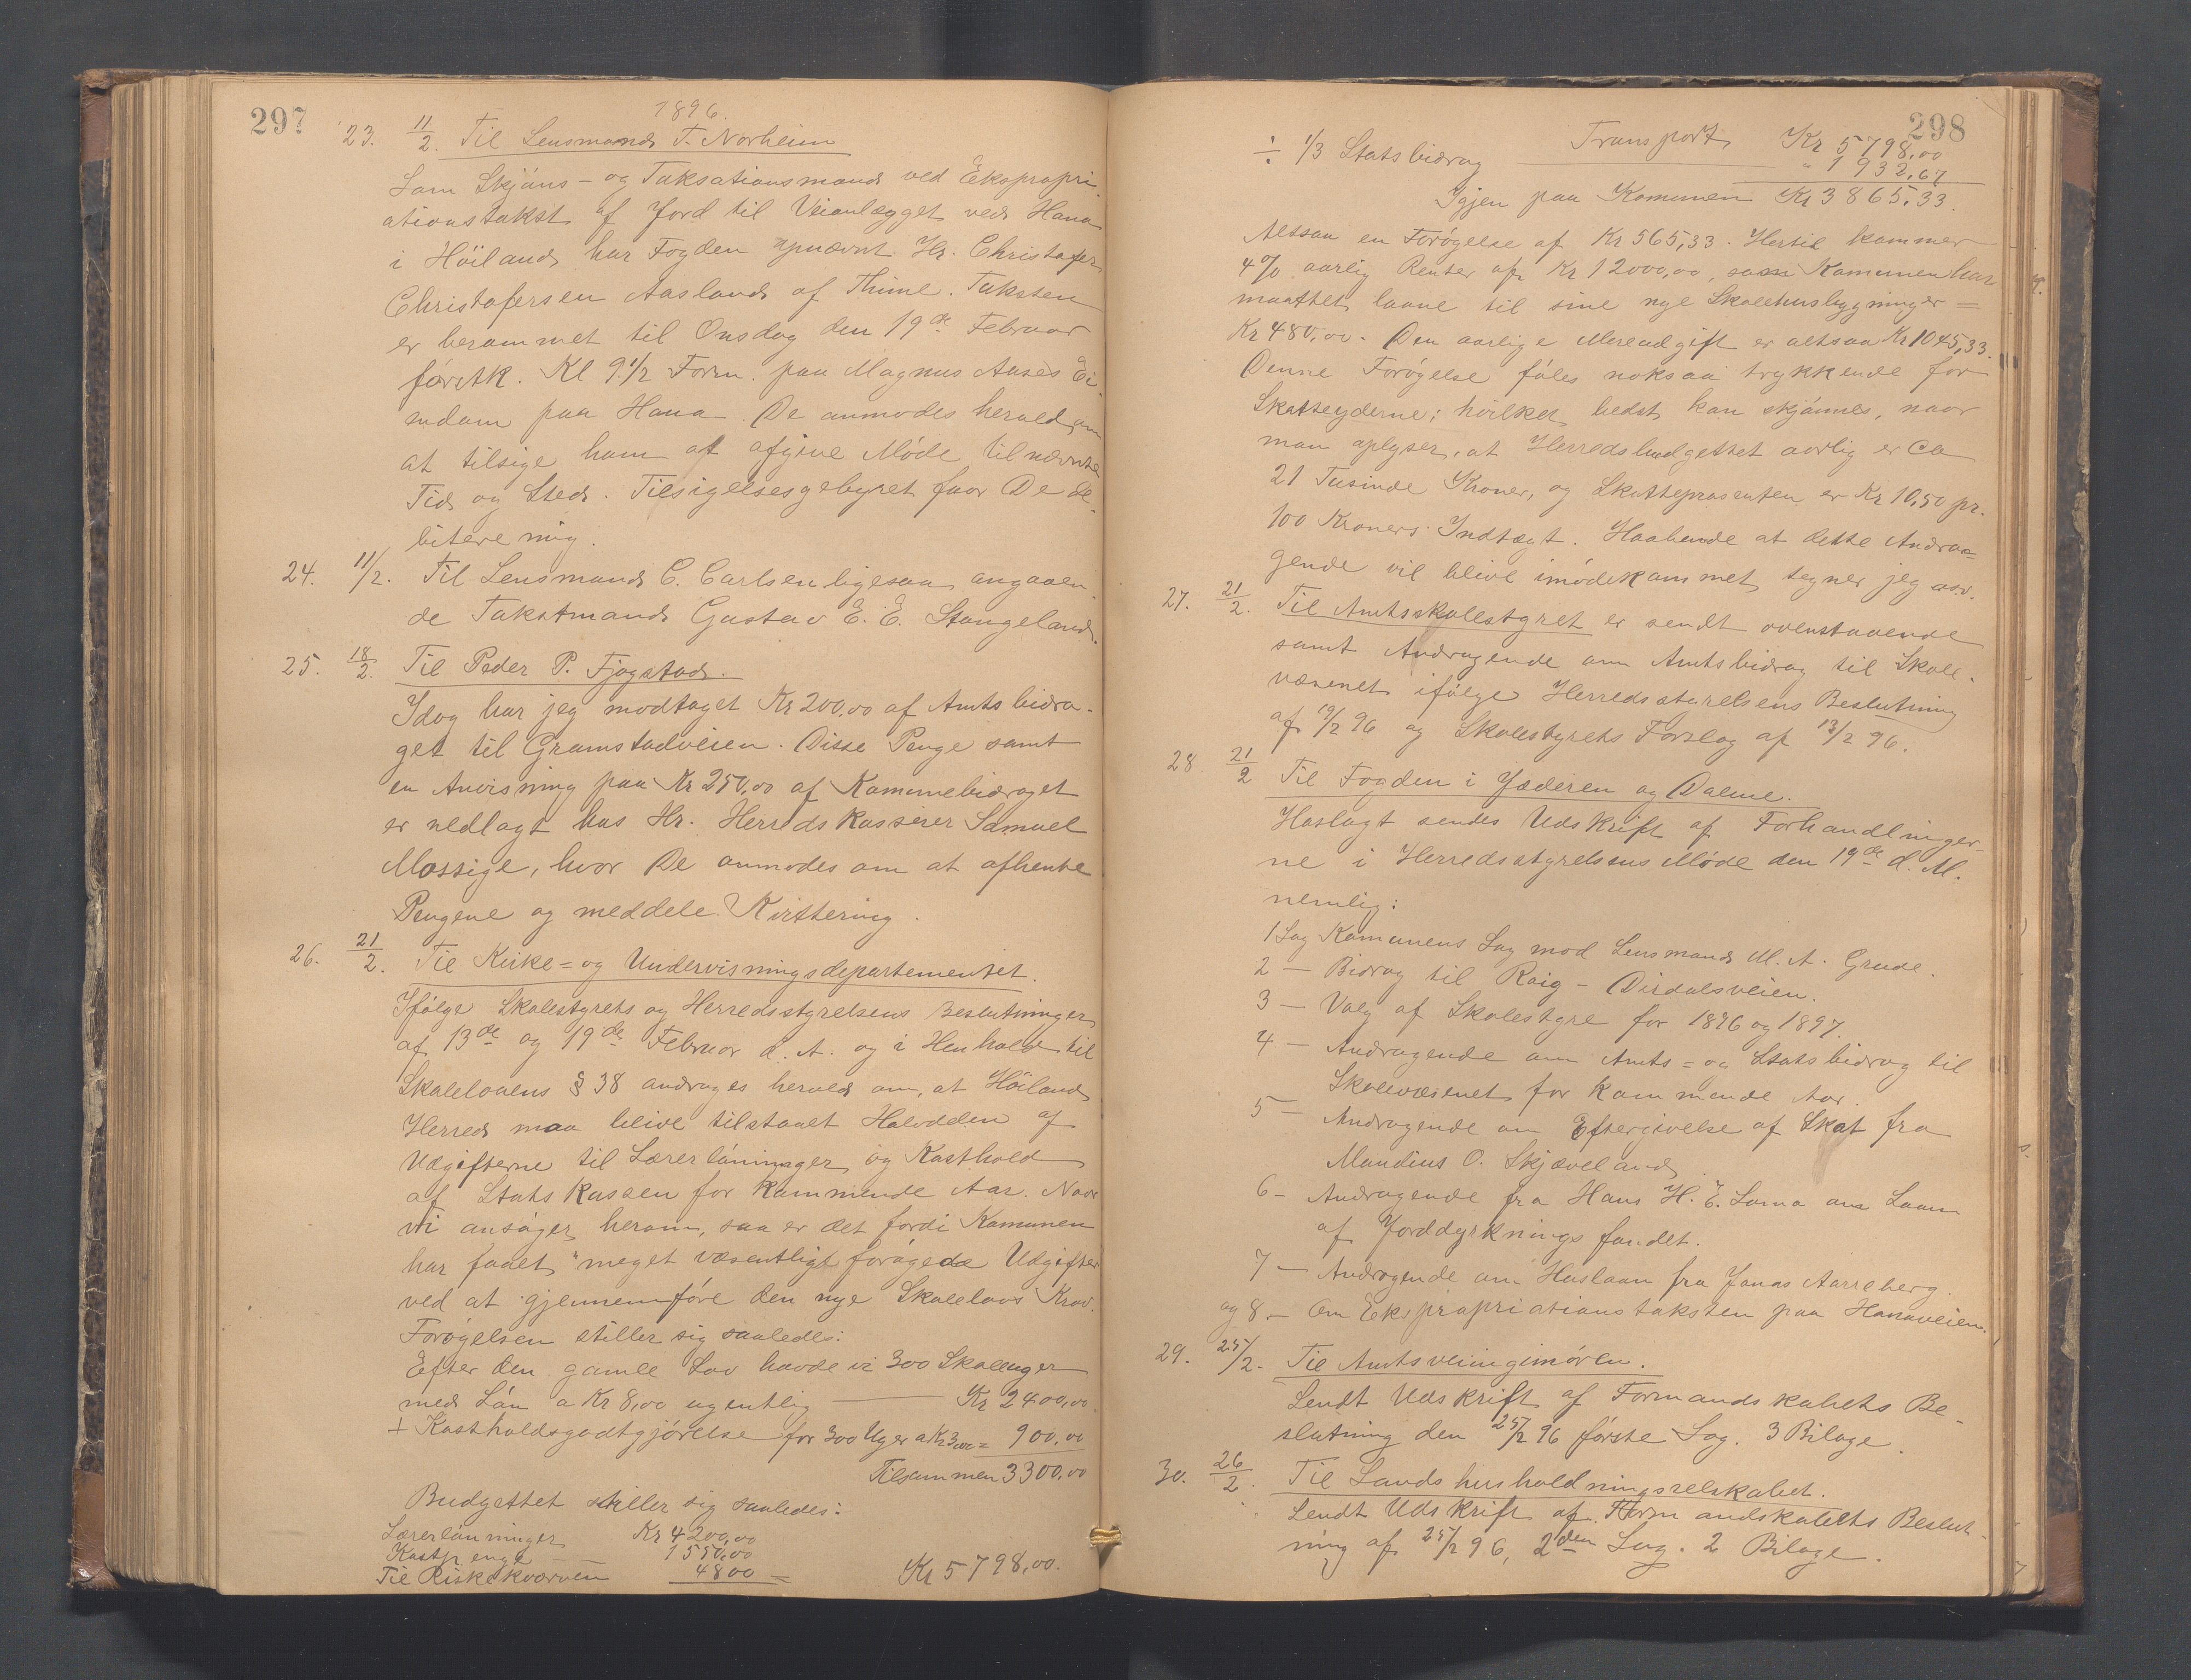 297
1896.
23. 11/2. Til Lensmand T. Norheim
Som Skjöns- og Taksationsmand ved Ekspropri-
ationstakst af Jord til Veianlægget ved Hana
i Höiland har Fogden opnævnt Hr. Christofer
Christofersen Aasland af Thime. Taksten
er berammet til Onsdag den 19de Februar
förstk. Kl 9 1/2 Form. paa Magnus Aases Ei-
endom paa Hana. De anmodes herved om
at tilsige ham at afgive Möde til nævnte
Tid og Sted. Tilsigelsesgebyret faar De de-
bitere mig.
24. 11/2. Til Lensmand C. Carlsen ligesaa angaaen-
de Takstmand Gustav E. E. Stangeland.
25. 18/2. Til Peder P. Fjogstad.
Idag har jeg modtaget Kr 200,00 af Amtsbidra-
get til Gramstadveien. Disse Penge samt
en Anvisning paa Kr 250,00 af Kommunebidraget
er nedlagt hos Hr. Herredskasserer Samuel
Mossige, hvor De anmodes om at afhente
Pengene og meddele Kvittering.
26. 21/2. Til Kirke- og Undervisningsdepartementet.
Ifölge Skolestyrets og Herredsstyrelsens Beslutninger
af 13de og 19de Februar d. A. og i Henhold til
Skolelovens § 38 andrages herved om, at Höiland
Herred maa blive tilstaaet Halvdelen af
Udgifterne til Lærerlönninger og Kosthold
af Statskassen for kommende Aar. Naar
vi ansöger herom, saa er det fordi Kommunen
har faaet meget væsentligt forögede Udgifter
ved at gjennemföre den nye Skolelovs Krav.
Forögelsen stiller sig saaledes:
Efter den gamle Lov havde vi 300 Skoleuger
med Lön a Kr 8,00 ugentlig — Kr 2400,00
+ Kostholdsgodtgjörelse for 300 Uger a Kr 3,00 = 900,00
Tilsammen 3300,00
Budgettet stiller sig saaledes:
Lærerlönninger Kr 4200,00
Kostpenge — 1550,00
Til Riskekværven 48 00 = Kr 5798,00.
298
Transport Kr 5798,00
÷ 1/3 Statsbidrag — " 1932,67
Igjen paa Kommunen Kr 3865,33.
Altsaa en Forögelse af Kr 565,33. Hertil kommer
4 % aarlig Renter af Kr 12000,00, som Kommunen har
maattet laane til sine nye Skolehusbygninger =
Kr 480,00. Den aarlige Merudgift er altsaa Kr 1045,33.
Denne Forögelse föles noksaa trykkende for
Skatteyderne; hvilket bedst kan skjönnes, naar
man oplyser, at Herredsbudgettet aarlig er ca
21 Tusinde Kroner, og Skatteprosenten er Kr 10,50 pr.
100 Kroners Indtægt. Haabende at dette Andra-
gende vil blive imödekommet tegner jeg osv.
27. 21/2. Til Amtsskolestyret er sendt ovenstaaende
samt Andragende om Amtsbidrag til Skole-
væsenet ifölge Herredsstyrelsens Beslutning
af 19/2 96 og Skolestyrets Forslag af 13/2 96.
28 21/2 Til Fogden i Jæderen og Dalene.
Hoslagt sendes Udskrift af Forhandlinger-
ne i Herredsstyrelsens Möde den 19de d. M.
nemlig:
1 Sag Kommunens Sag mod Lensmand M. A. Grude.
2 — Bidrag til Roig-Dirdalsveien.
3 — Valg af Skolestyre for 1896 og 1897.
4 — Andragende om Amts- og Statsbidrag til
Skolevæsenet for kommende Aar.
5 — Andragende om Eftergivelse af Skat fra
Maudius O. Skjæveland
6 — Andragende fra Hans H. E. Loma om Laan
af Jorddyrkningsfondet.
7 — Andragende om Huslaan fra Jonas Aarreberg.
og 8. — Om Ekspropriationstaksten paa Hanaveien.
29. 25/2. Til Amtsveiingeniören.
Sendt Udskrift af Formandskabets Be-
slutning den 25/2 96 förste Sag. 3 Bilage.
30. 26/2. Til Landshusholdningsselskabet.
Sendt Udskrift af Formandskabets Beslut-
ning af 25/2 96, 2den Sag. 2 Bilage.